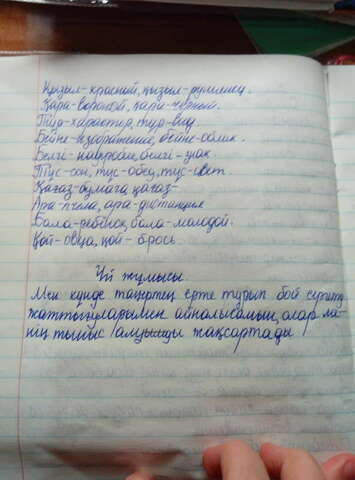 Қызыл-красный, қызыл-румянец.
Қара-вороной, қара-черный.
Түр-характер, түр-вид.
Бейне-изображение, бейне-облик.
Белгі- белгі-знак
Түс-сон, түс-обед, түс-цвет.
Қағаз-бумага, қағаз-
Ара-пчела, ара-дистанция
Бала-ребенок, бала-молодой.
Қой-овца, қой-брось
Үй жұмысы.
Мен күнде таңертең ерте тұрып бой сергіту
жаттығуларымен айналысамын, олар ма-
ның тыныс алуымды жақсартады